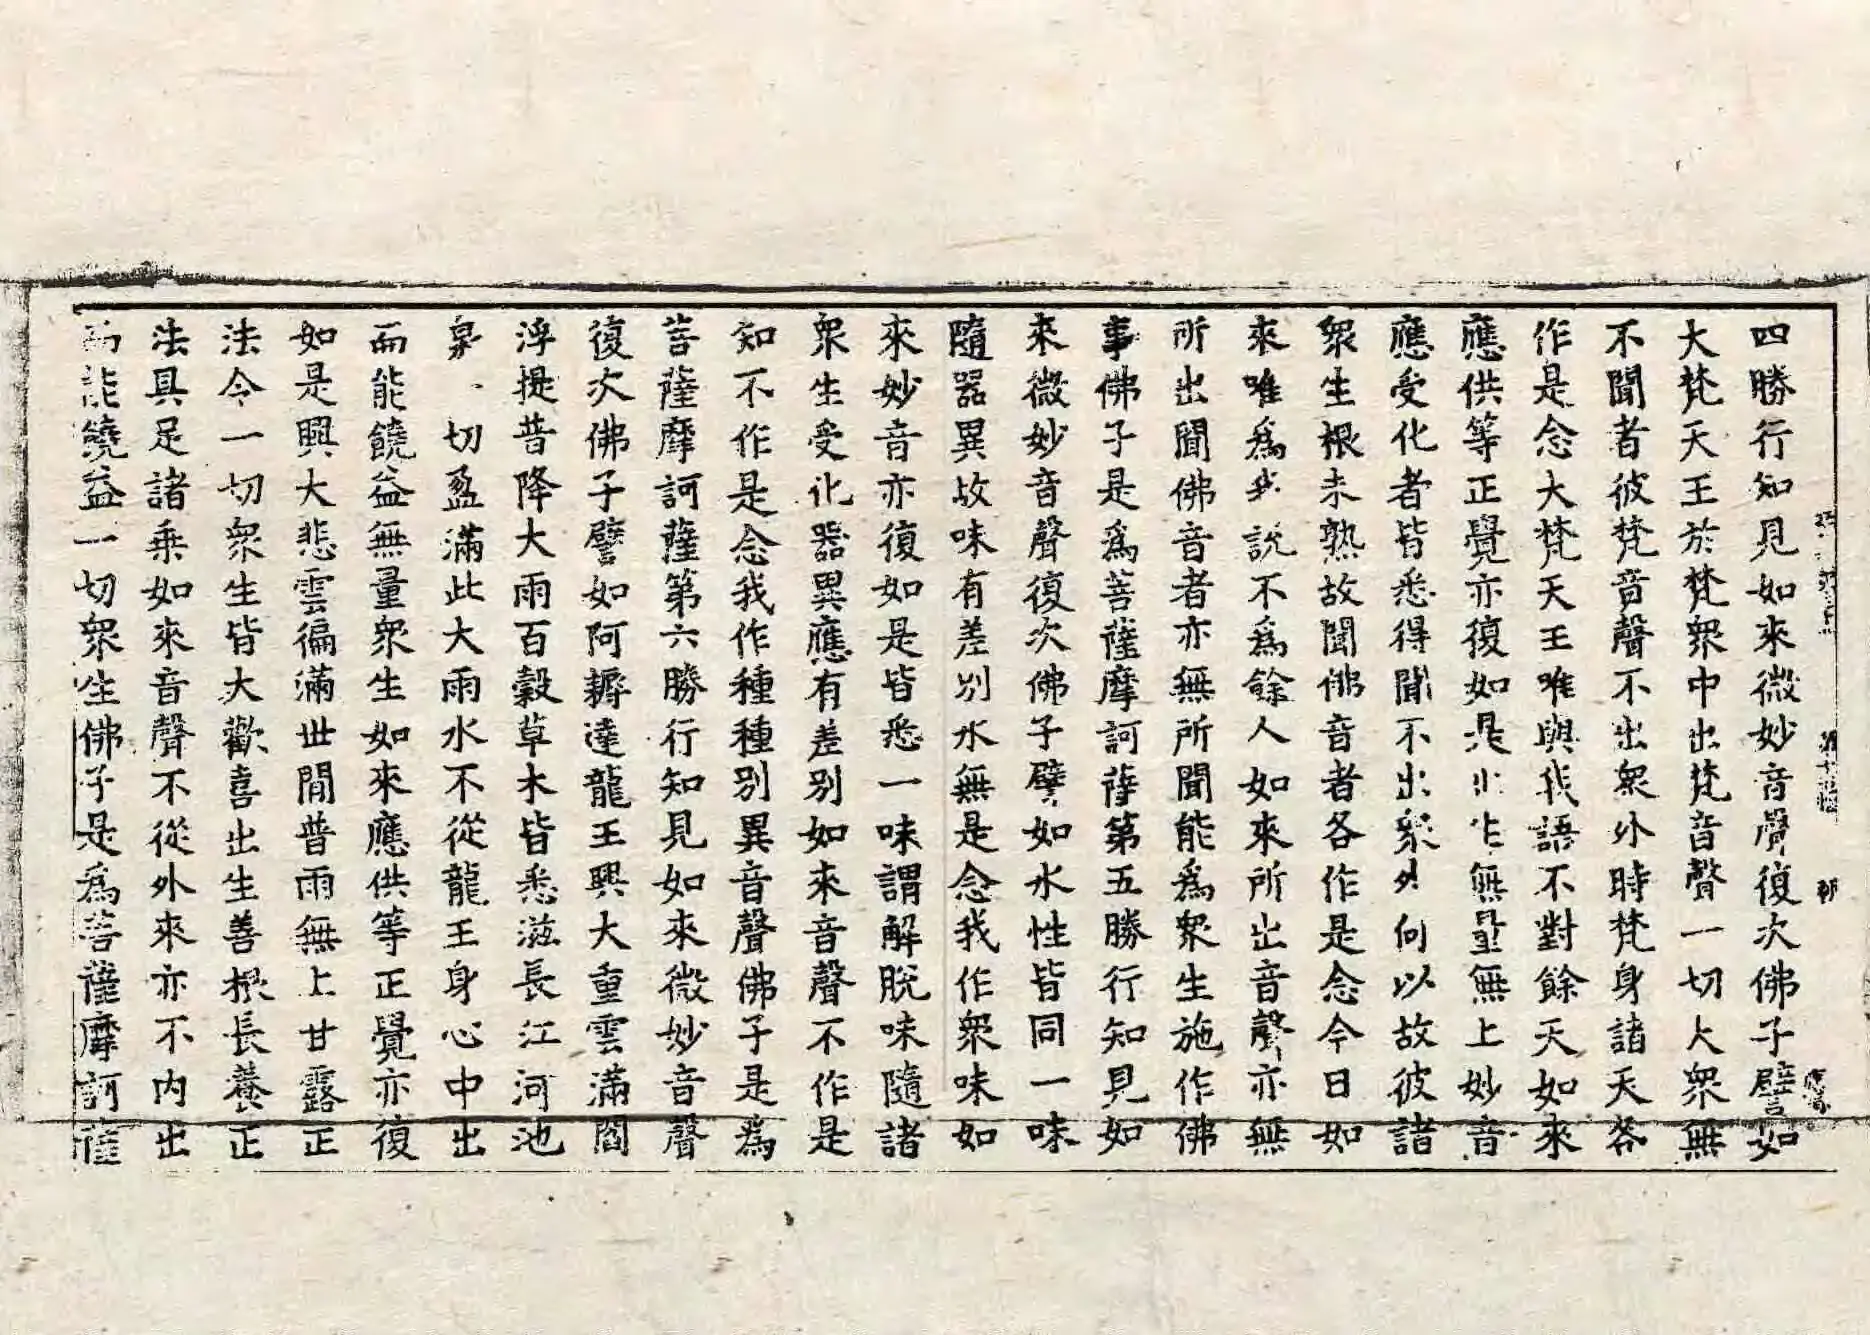 四勝行知見如來微妙音聲復次佛子譬如
大梵天王於梵衆中出梵音聲一切大衆無
不聞者彼梵音聲不出衆外時梵身諸天各
作是念大梵天王唯與我語不對餘天如來
應供等正覺亦復如是出生無量無上妙音
應受化者皆悉得聞不出衆外何以故彼諸
衆生根未熟故聞佛音者各作是念今日如
來唯爲我說不爲餘人如來所出音聲亦無
所出聞佛音者亦無所聞能爲衆生施作佛
事佛子是爲菩薩摩訶薩第五勝行知見如
來微妙音聲復次佛子譬如水性皆同一味
隨器異故味有差別水無是念我作衆味如
來妙音亦復如是皆悉一味謂解脫味隨諸
衆生受化器異應有差別如來音聲不作是
知不作是念我作種種別異音聲佛子是爲
菩薩摩訶薩第六勝行知見如來微妙音聲
復次佛子譬如阿耨達龍王興大重雲滿閻
浮提普降大雨百穀草木皆悉滋長江河池
泉一切盈滿此大雨水不從龍王身心中出
而能饒益無量衆生如來應供等正覺亦復
如是興大悲雲徧滿世間普雨無上甘露正
法令一切衆生皆大歡喜出生善根長養正
法具足諸乘如來音聲不從外來亦不內出
而能饒益一切衆生佛子是爲菩薩摩訶薩